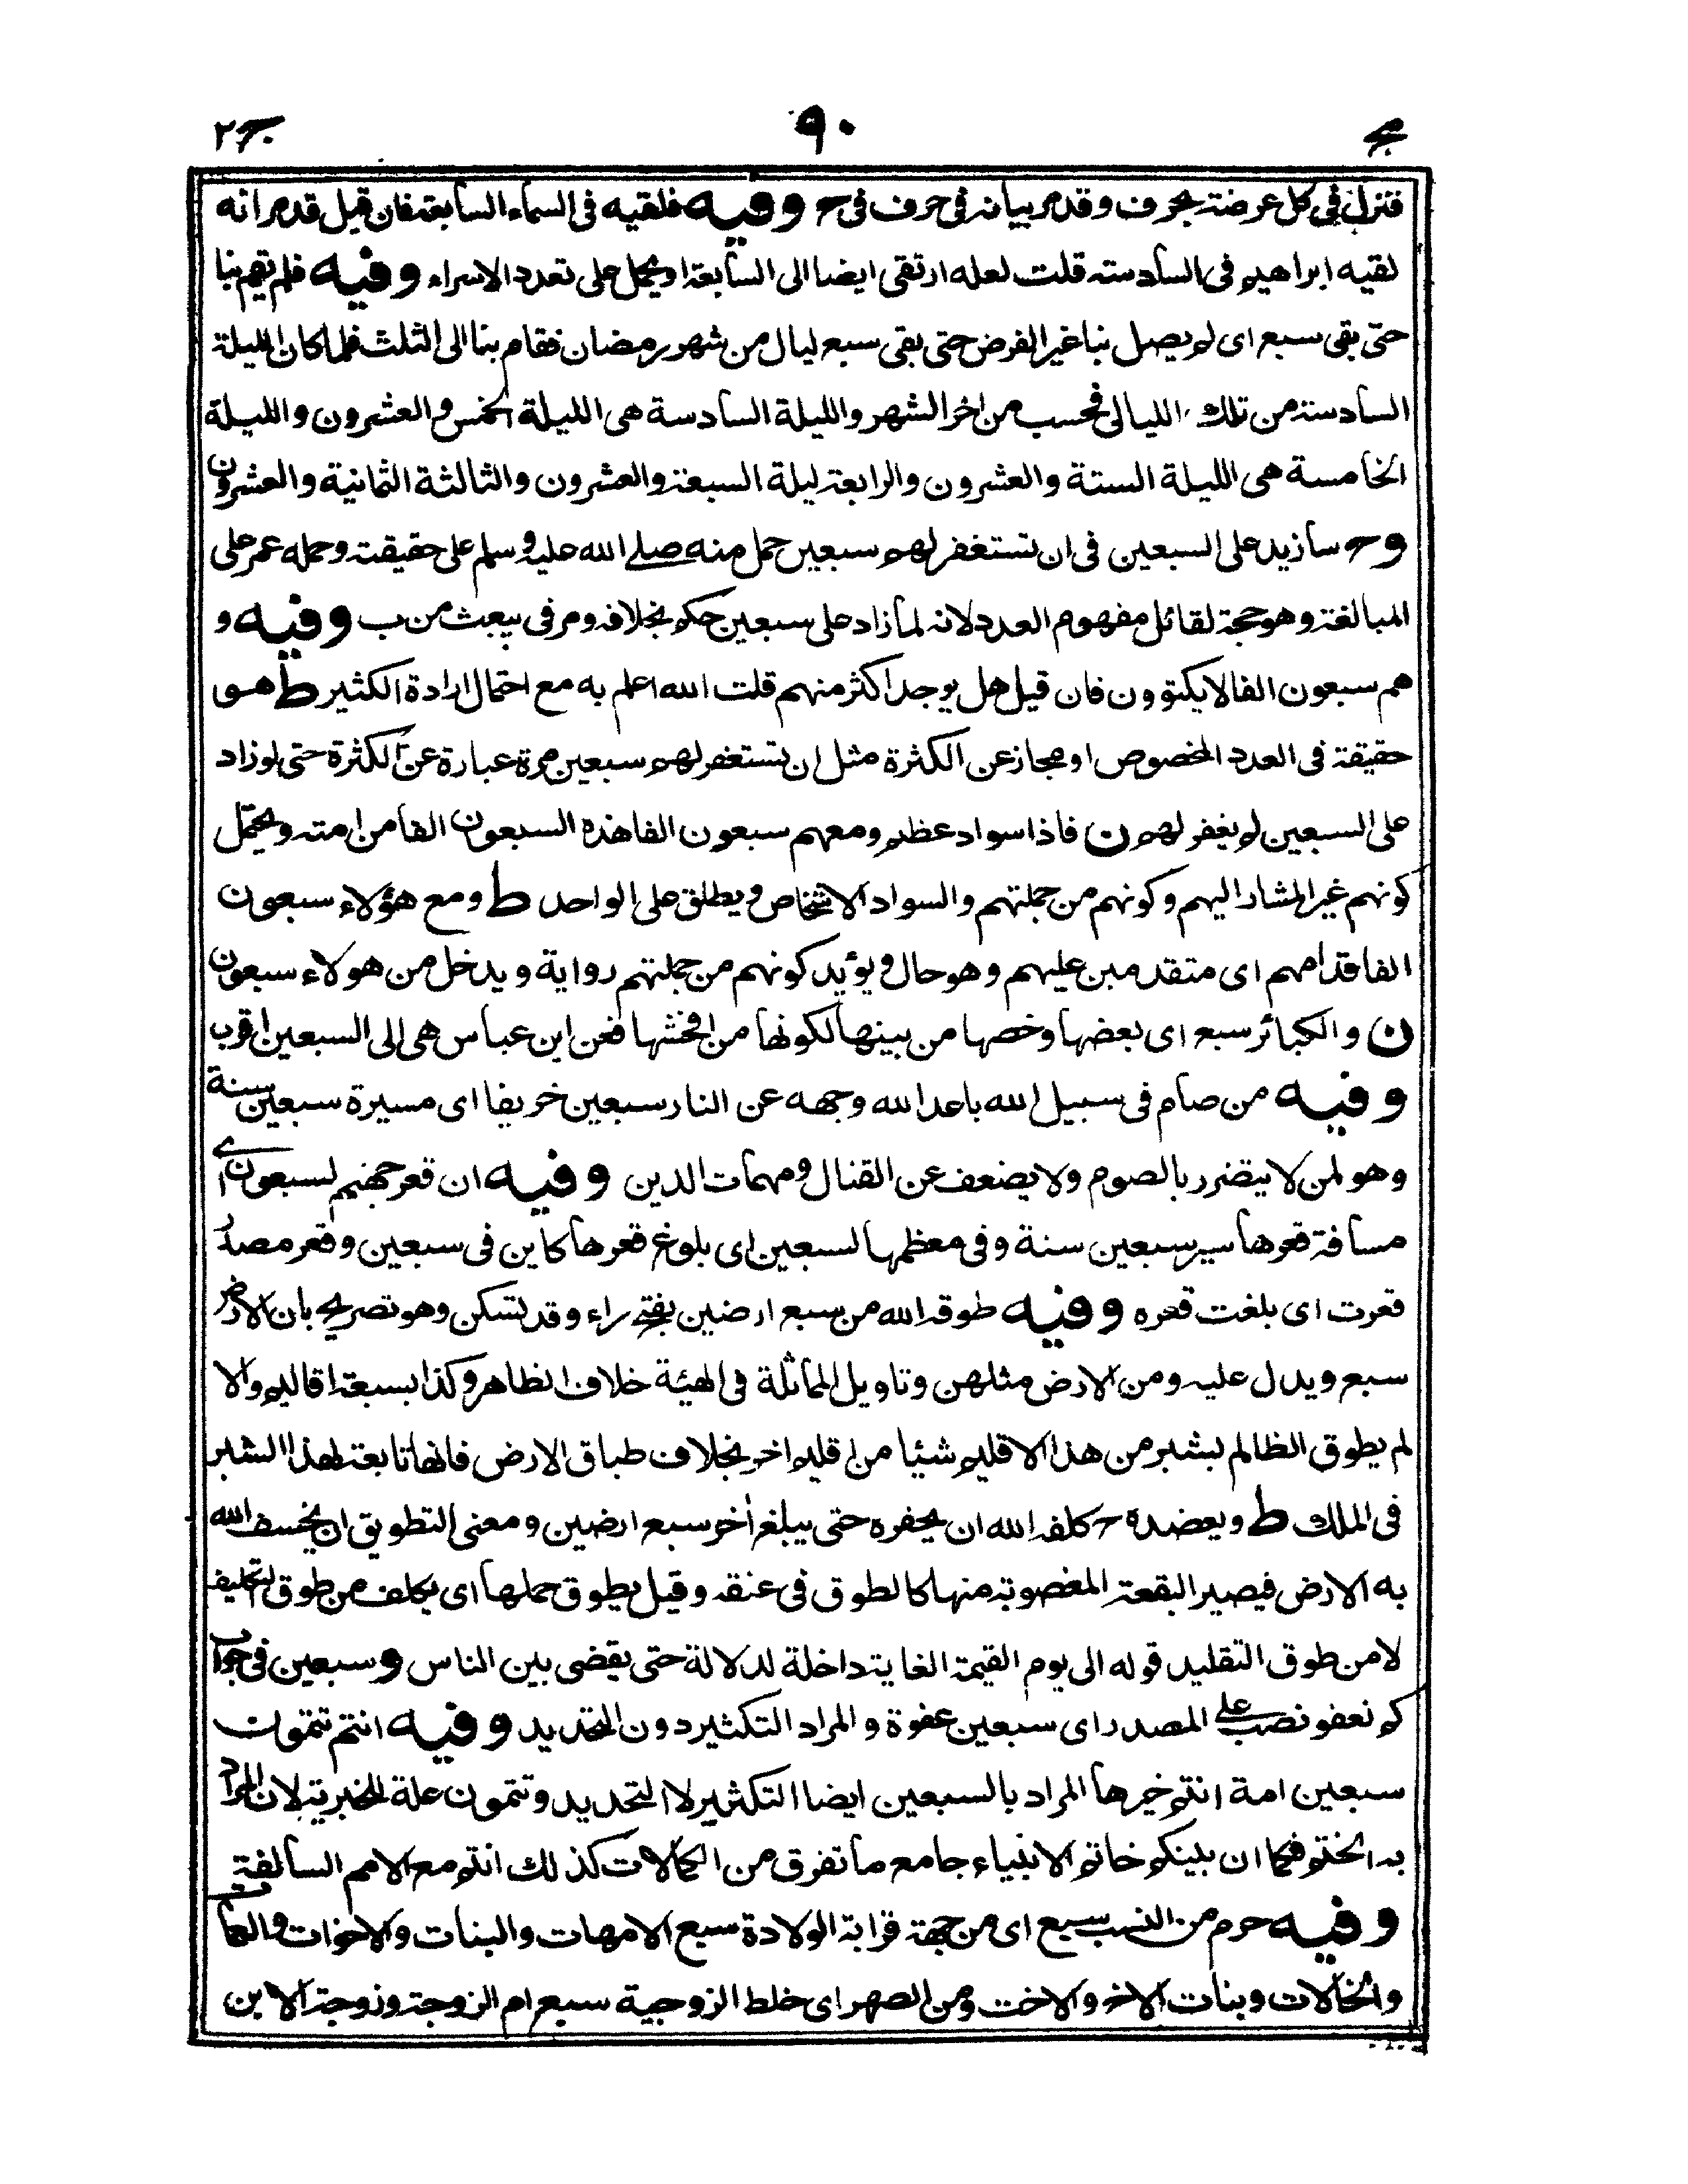 ج ٢ ٩٠ مجمع
فنزل فى كل عرضة بحرف وقد مر بيانه فى حرف فى ح وفيه فلقيه فى السماء السابعة فان قيل قد مر انه
لقيه ابراهيم فى السادسة قلت لعله ارتقى ايضا الى السابعة او يحمل على تعدد الاسراء وفيه فلم يقم بنا
حتى بقى سبع اى لم يصل بنا غير الفرض حتى بقى سبع ليال من شهر رمضان فقام بنا الى الثلث فلما كان الليلة
السادسة من تلك الليالى فحسب من اخر الشهر والليلة السادسة هى الليلة الخمس والعشرون والليلة
الخامسة هى الليلة الستة والعشرون والرابعة ليلة السبعة والعشرون والثالثة الثمانية والعشرون
وح سازيد على السبعين فى ان تستغفر لهم سبعين حمل منه صلى الله عليه وسلم على حقيقته وحمله عمر على
المبالغة وهو حجة لقائل مفهوم العدد لانه لما زاد على سبعين حكم بخلافه ومر فى يبعث من ب وفيه و
هم سبعون الفا لا يكتوون فان قيل هل يوجد اكثر منهم قلت الله اعلم به مع احتمال ارادة الكثير ط هو
حقيقة فى العدد المخصوص او مجاز عن الكثرة مثل ان تستغفر لهم سبعين مرة عبارة عن الكثرة حتى لو زاد
على السبعين لم يغفر لهم ن فاذا سواد عظيم ومعهم سبعون الفا هذه السبعون الفا من امته ويحتمل
كونهم غير المشار اليهم وكونهم من جملتهم والسواد الاشخاص ويطلق على الواحد ط ومع هؤلاء سبعون
الفا قدامهم اى متقدمين عليهم وهو حال ويؤيد كونهم من جملتهم رواية ويدخل من هولاء سبعون
ن والكبائر سبع اى بعضها وخصها من بينها لكونها من افحشها فعن ابن عباس هى الى السبعين اقرب
وفيه من صام فى سبيل الله باعد الله وجهه عن النار سبعين خريفا اى مسيرة سبعين سنة
وهو لمن لا يتضرر بالصوم ولا يضعف عن القتال ومهمات الدين وفيه ان قعر جهنم لسبعون اى
مسافة قعرها سير سبعين سنة وفى معظمها لسبعين اى بلوغ قعرها كاين فى سبعين وقعر مصدر
قعرت اى بلغت قعره وفيه طوقه الله من سبع ارضين بفتح راء وقد تسكن وهو تصريح بان الارض
سبع ويدل عليه ومن الارض مثلهن وتاويل المماثلة فى الهيئة خلاف الظاهر وكذا بسبعة اقاليم والا
لم يطوق الظالم بشبر من هذا الاقليم شيئا من اقليم اخر بخلاف طباق الارض فانها تابعة لهذا الشبر
فى الملك ط ويعضده ح كلفه الله ان يحفره حتى يبلغ اخر سبع ارضين ومعنى التطويق ان يخسف الله
به الارض فيصير البقعة المغصوبة منها كالطوق فى عنقه وقيل يطوق حملها اى يكلف من طوق التكليف
لا من طوق التقليد قوله الى يوم القيمة الغاية داخلة لدلالة حتى يقضى بين الناس وسبعين فى جواب
كم نعفو نصب على المصدر اى سبعين عفوة والمراد التكثير دون التحديد وفيه انتم تتمون
سبعين امة انتم خيرها المراد بالسبعين ايضا التكثير لا التحديد وتتمون علة للخبرية لان المراد
به الختم فكما ان بينكم خاتم الانبياء جامع ما تفرق من الكمالات كذلك انتم مع الامم السالفة
وفيه حرم من النسب سبع اى من جهة قرابة الولادة سبع الامهات والبنات والاخوات والعمات
والخالات وبنات الاخ والاخت ومن الصهر اى خلط الزوجية سبع ام الزوجة وزوجة الابن